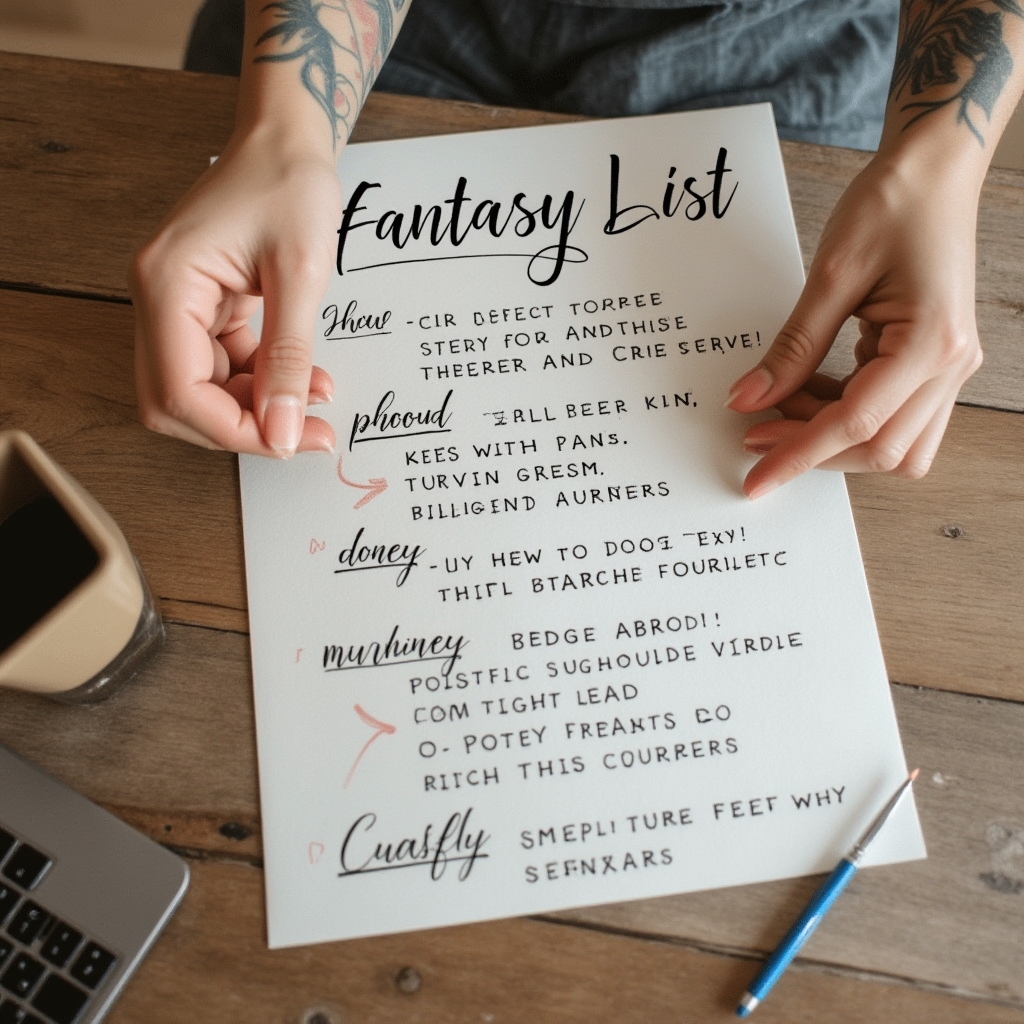 Fantasy List
Show -CIR DEFECT TORREE
STERY FOR ANDTHISE
THEERER AND CRIE SERVE!
phooud ERLL BEER KIN,
KEES WITH PANS.
TURVIN GRESM.
BILLIGEND AURNERS
doney -UY HEW TO DOOS TEXY!
THITL BTARCHE FOURILETC
murhiney BEDGE ABRODI!
POISTFIC SUGHOULDE VIRDLE
COM TIGHT LEAD
O- POTEY FREANTS DO
RITCH THIS COURRERS
Cuasfly SMEPLI TURE FEET WHY
SEFNXARS